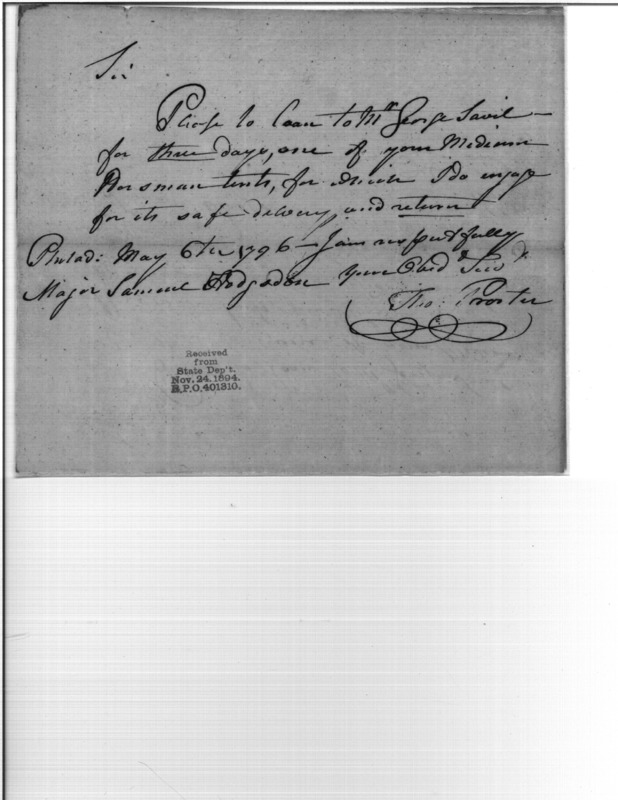 Sir
Please to Loan to Mr. George Savil
for three days, one of your Medium
Horsman tents, for which I do engage
for its safe delivery and return
Philad: May 6th 1796 – I am respectfully
Major Samuel Hodgsdon Your Obed Serv
Tho: Procter
Received
from
State Dep't.
Nov. 24. 1894.
R.P.O. 401310.